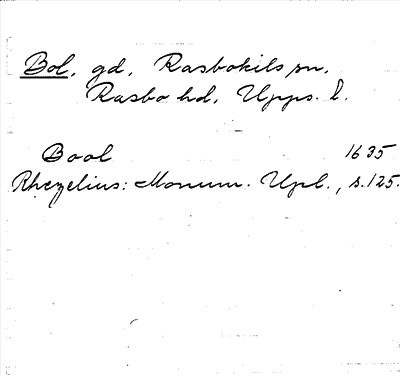 Bol, gd, Rasbokils sn,
Rasbo hd, Upps. l.
Bool 1635
Rhezelius: Monum. Upl., s.125.